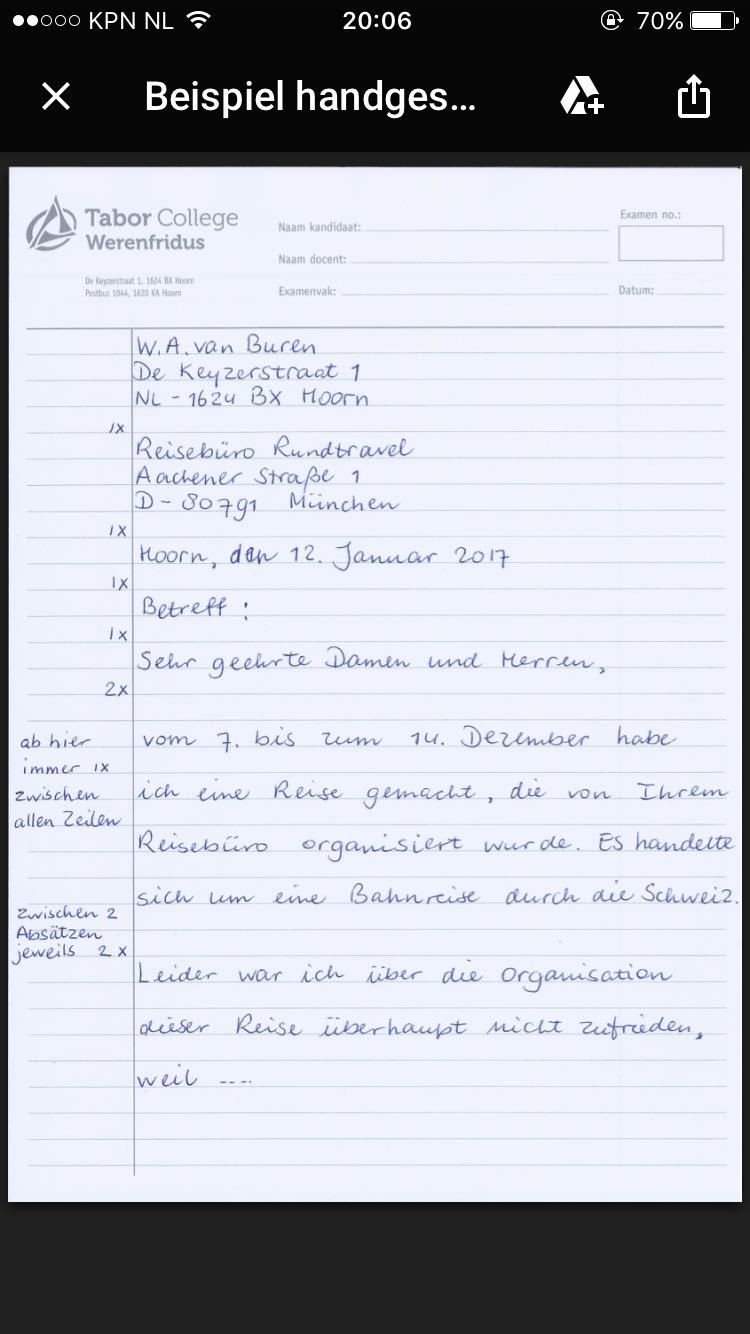 KPN NL 20:06 70%
Beispiel handges...
Tabor College
Werenfridus
De Keyzerstraat 1, 1624 BX Hoorn
Postbus 1044, 1620 KA Hoorn
Naam kandidaat:
Naam docent:
Examenvak:
Examen no.:
Datum:
W.A. van Buren
De Keyzerstraat 1
NL - 1624 BX Hoorn
1x
Reisebüro Rundtravel
Aachener Straße 1
D - 80791 München
1x
Hoorn, den 12. Januar 2017
1x
Betreff:
1x
Sehr geehrte Damen und Herren,
2x
ab hier
immer 1x
zwischen
allen Zeilen
vom 7. bis zum 14. Dezember habe
ich eine Reise gemacht, die von Ihrem
Reisebüro organisiert wurde. Es handelte
sich um eine Bahnreise durch die Schweiz.
zwischen 2
Absätzen
jeweils 2x
Leider war ich über die Organisation
dieser Reise überhaupt nicht zufrieden,
weil ----